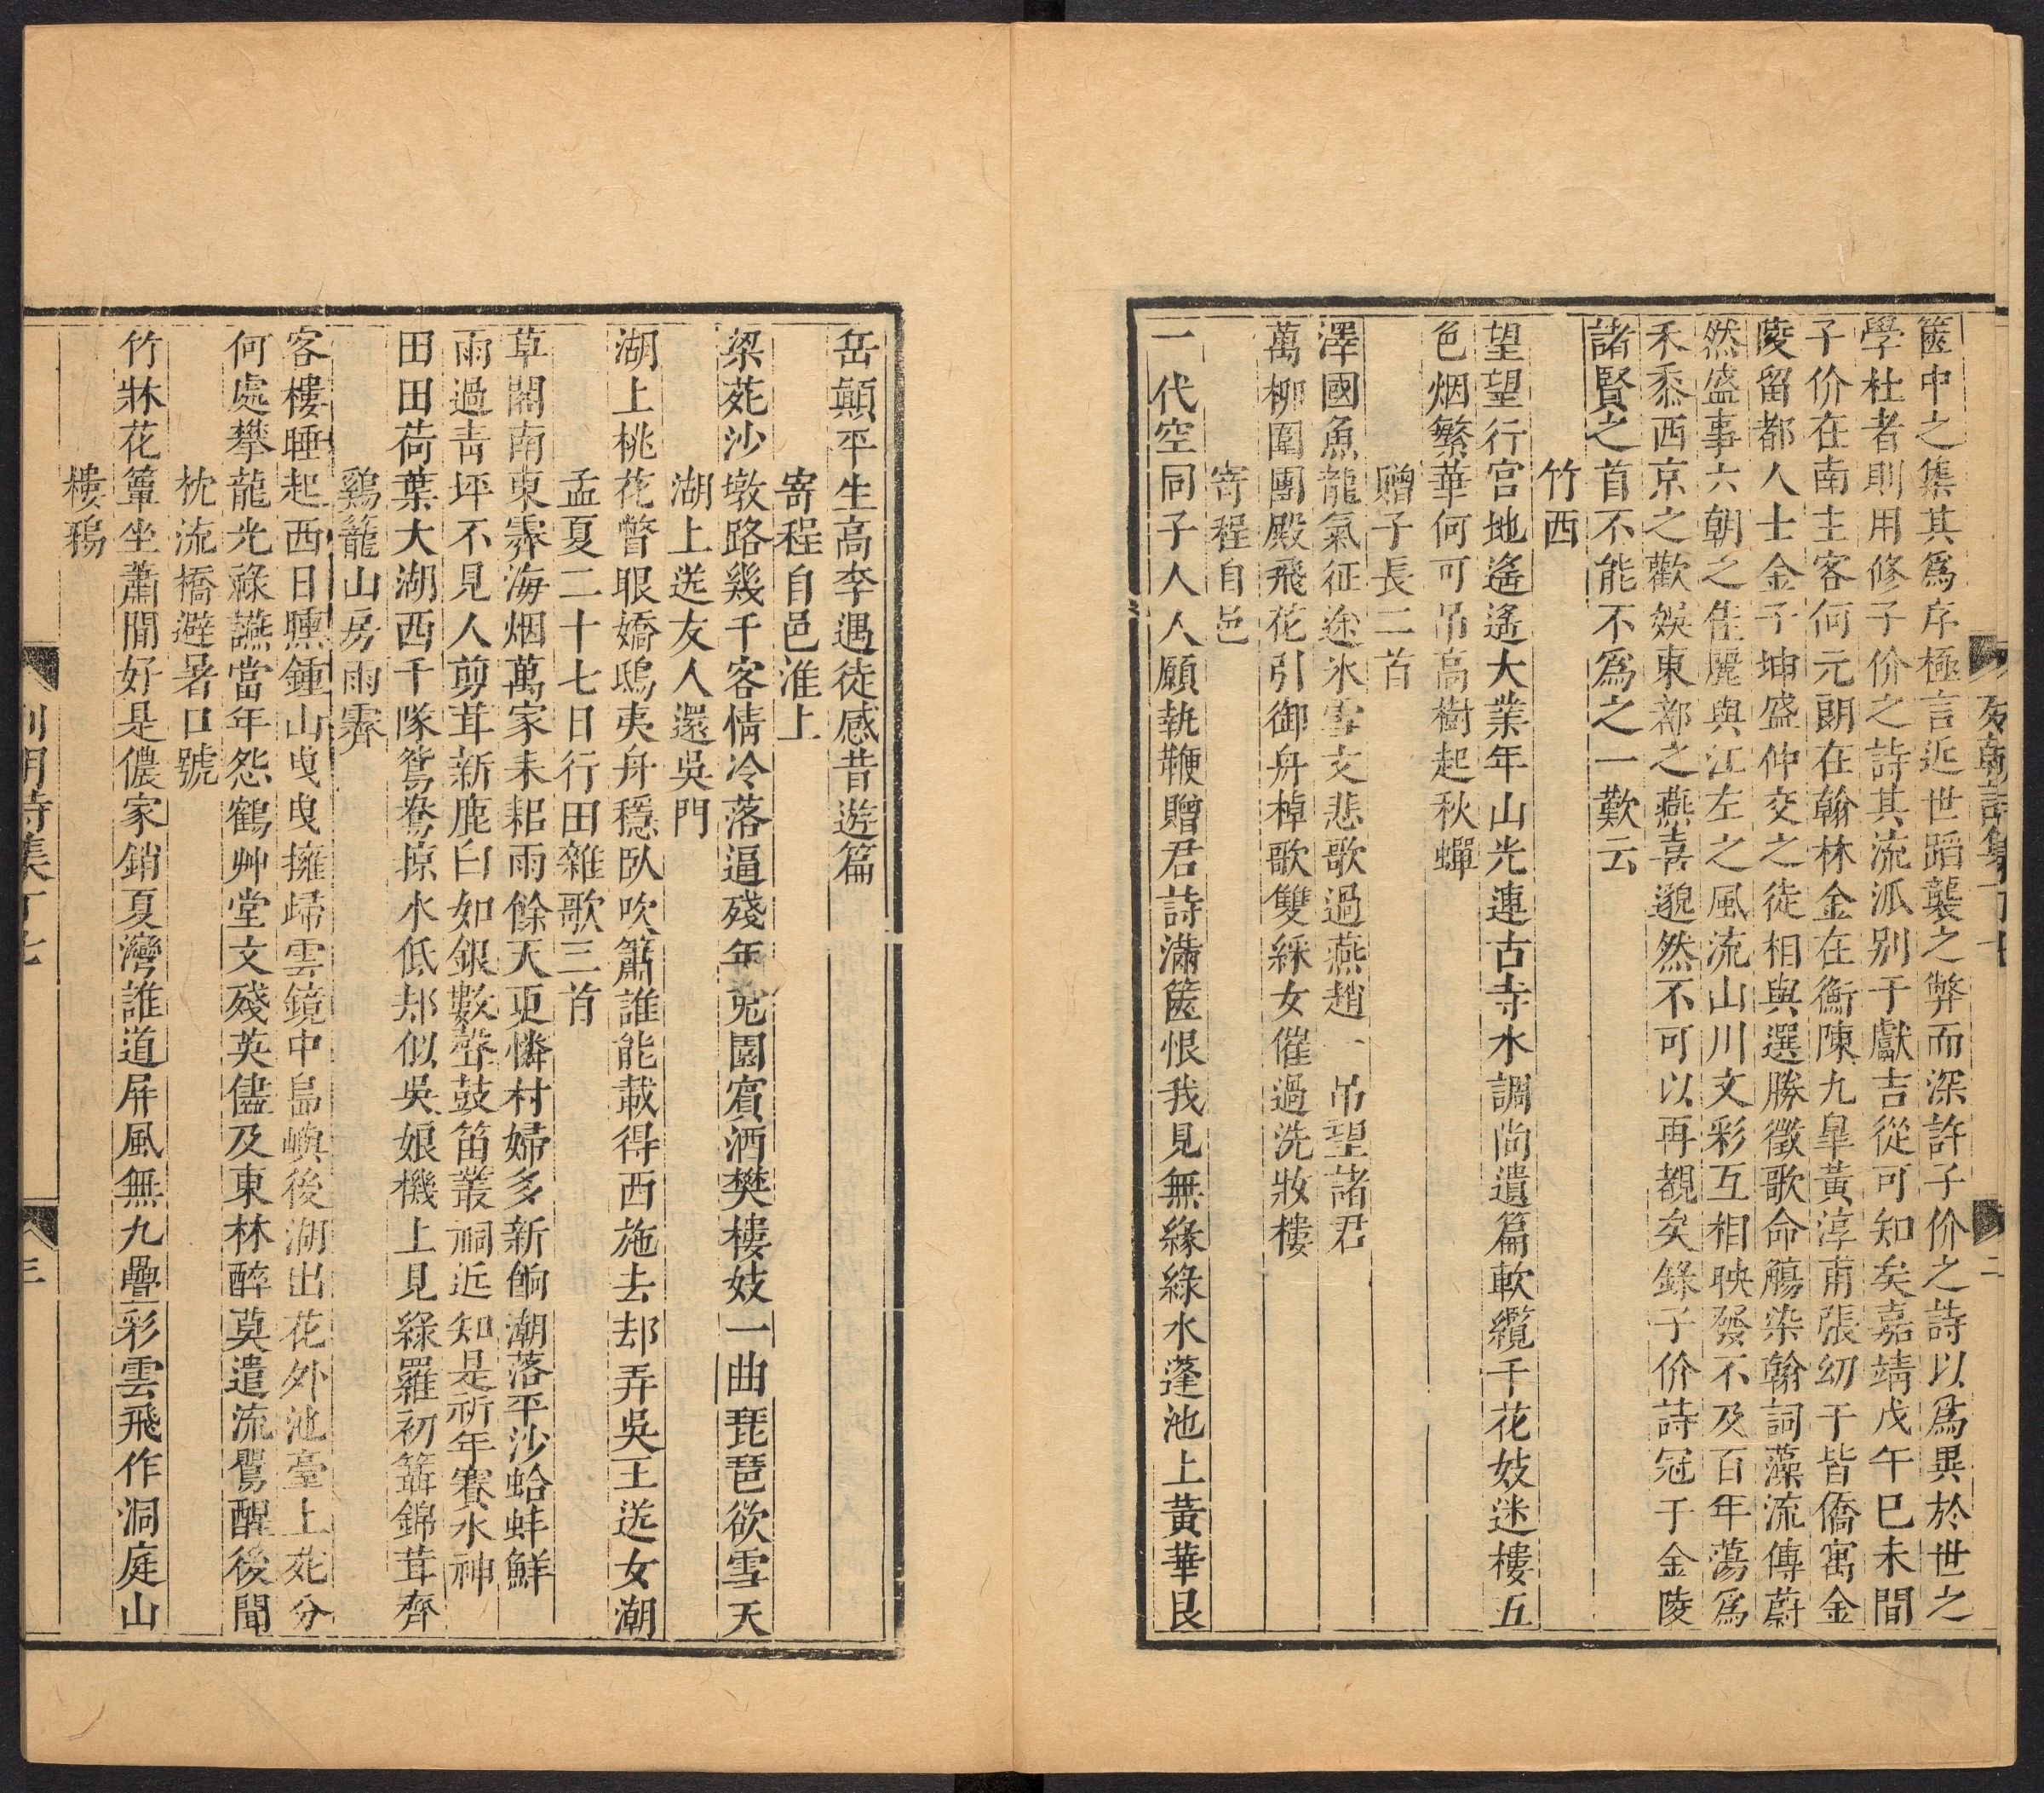 列朝詩集丁七
二
篋中之集其爲序極言近世蹈襲之弊而深許子价之詩以爲異於世之
學杜者則用修子价之詩其流派别于獻吉從可知矣嘉靖戊午巳未間
子价在南主客何元朗在翰林金在衡陳九臯黃淳甫張幼于皆僑寓金
陵留都人士金子坤盛仲交之徒相與選勝徵歌命觴染翰詞藻流傳蔚
然盛事六朝之隹麗與江左之風流山川文彩互相映發不及百年蕩爲
禾黍西京之歡娛東都之燕喜邈然不可以再覩矣錄子价詩冠于金陵
諸賢之首不能不爲之一歎云
竹西
望望行宮地遙遙大業年山光連古寺水調尚遺篇軟纜千花妓迷樓五
色烟繁華何可吊高樹起秋蟬
贈子長二首
澤國魚龍氣征途氷雪文悲歌過燕趙一吊望諸君
萬柳圍團殿飛花引御舟棹歌雙綵女催過洗妝樓
寄程自邑
一代空同子人人願執鞭贈君詩滿篋恨我見無緣綠水蓬池上黃華艮
岳顛平生高李遇徒感昔遊篇
寄程自邑淮上
梁苑沙墩路幾千客情冷落逼殘年兎園賓酒樊樓妓一曲琵琶欲雪天
湖上送友人還吳門
湖上桃花瞥眼嬌鴟夷舟穩臥吹簫誰能載得西施去却弄吳王送女潮
孟夏二十七日行田雜歌三首
草閣南東霽海烟萬家耒耜雨餘天更憐村婦多新餉潮落平沙蛤蚌鮮
雨過靑坪不見人剪茸新鹿白如銀數聲鼓笛叢祠近知是祈年賽水神
田田荷葉大湖西千隊鴛鴦掠水低却似吳娘機上見綠羅初簇錦茸齊
鷄籠山房雨霽
客樓睡起西日曛鍾山曳曳擁歸雲鏡中島嶼後湖出花外池臺上苑分
何處攀龍光祿讌當年怨鶴艸堂文殘英儘及東林醉莫遣流鶯醒後聞
枕流橋避暑口號
竹牀花簟坐蕭閒好是儂家銷夏灣誰道屏風無九疊彩雲飛作洞庭山
樓鵶
列朝詩集丁七
三